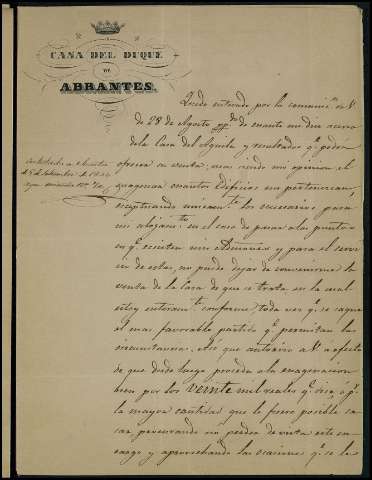 CASA DEL DUQUE
DE
ABRANTES.
Quedo enterado por la comunic.on de V.
de 28 de Agosto pp.do de cuanto me dice acerca
de la Casa del Aguila y resultados q.e podra
ofrecer su venta; siendo mi opinion el
enagenar cuantos Edificios me pertenezcan,
esceptuando unicam.te los necesarios para
mi alojam.to en el caso de pasar a los puntos
en q.e ecsisten mis Administ y para el servi
cio de estas, no puedo dejar de convenirme la
venta de la Casa de que se trata en la cual
estoy enteram.te conforme, toda vez q.e se saque
el mas favorable partido q.e permitan las
circunstancias. Asi que autorizo a V. a efecto
de que desde luego proceda a la enagenacion
bien por los veinte mil reales q.e dice, ó p.r
la mayor cantidad que le fuere posible sa
car procurando no perder de vista este en
cargo y aprovechando las ocasiones q.e se le
Contestada a Abrantes